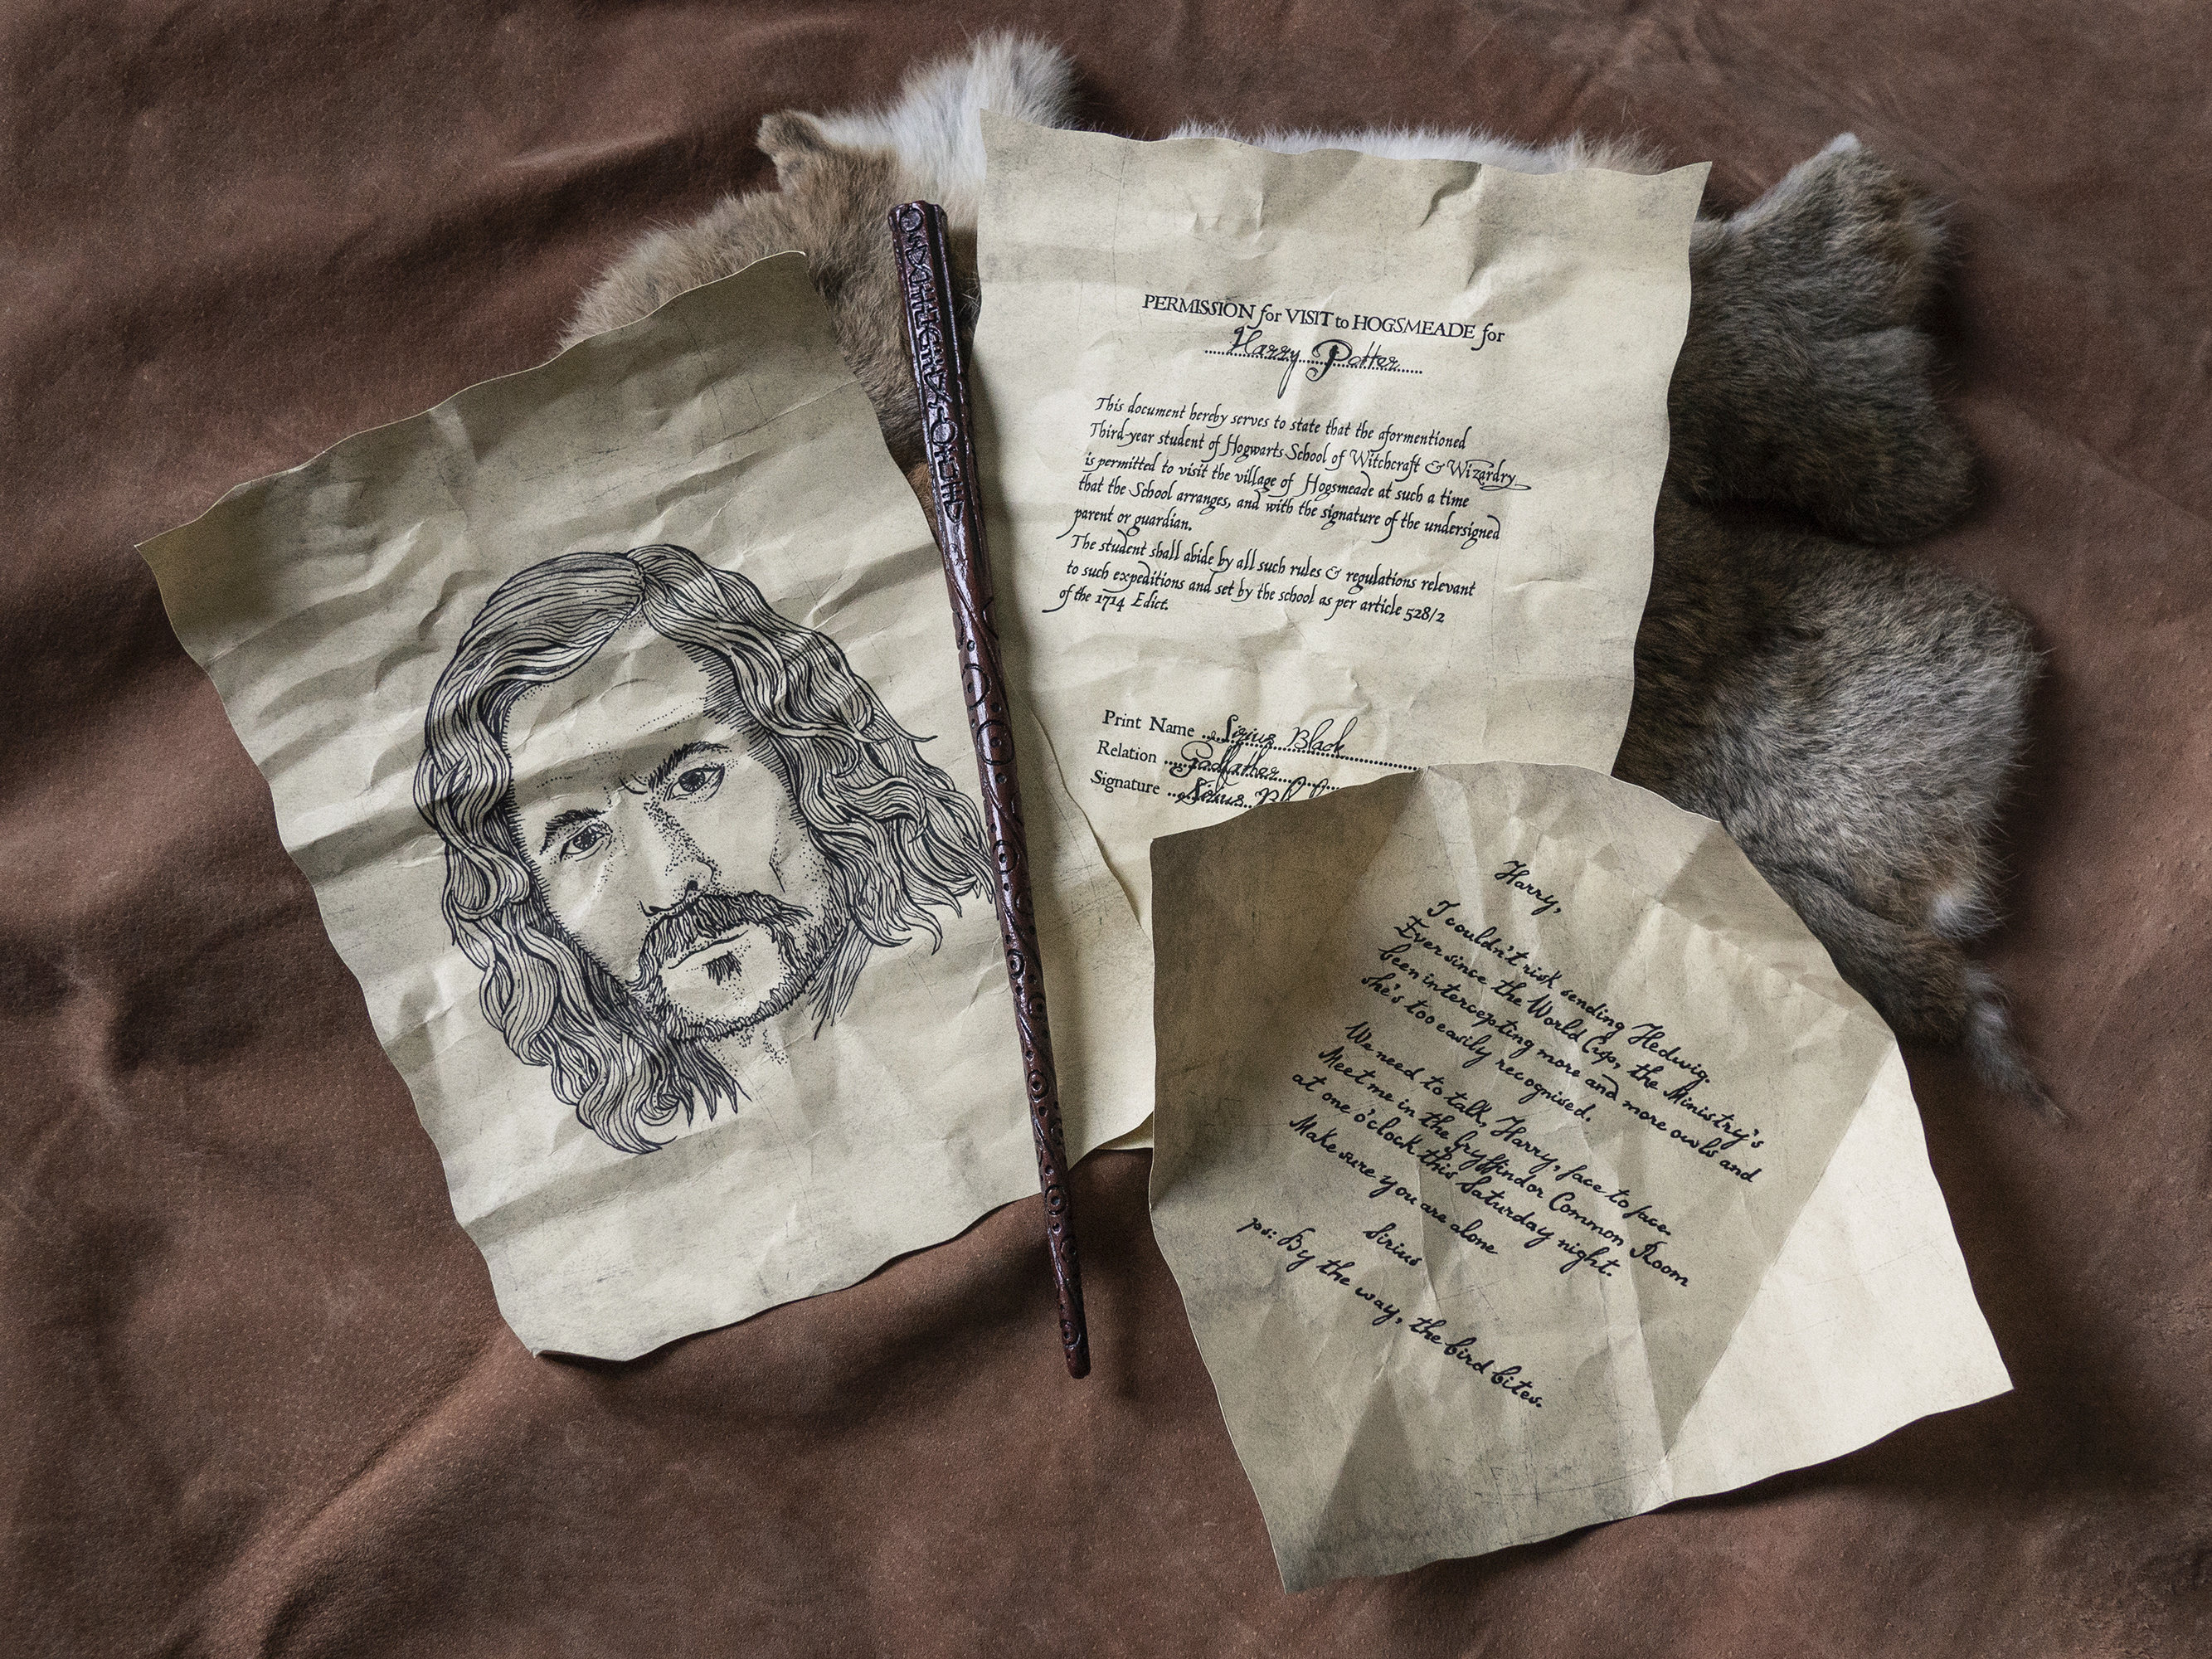 PERMISSION for VISIT to HOGSMEADE for
Harry Potter
This document hereby serves to state that the aformentioned
Third-year student of Hogwarts School of Witchcraft & Wizardry
is permitted to visit the village of Hogsmeade at such a time
that the School arranges, and with the signature of the undersigned
parent or guardian.
The student shall abide by all such rules & regulations relevant
to such expeditions and set by the school as per article 528/2
of the 1714 Edict.
Print Name Sirius Black
Relation Godfather
Signature Sirius
Harry,
I couldn't risk sending Hedwig.
Ever since the World Cup, the Ministry's
been intercepting more and more owls and
she's too easily recognised.
We need to talk, Harry, face to face.
Meet me in the Gryffindor Common Room
at one o'clock this Saturday night.
Make sure you are alone
Sirius
ps: By the way, the bird bites.